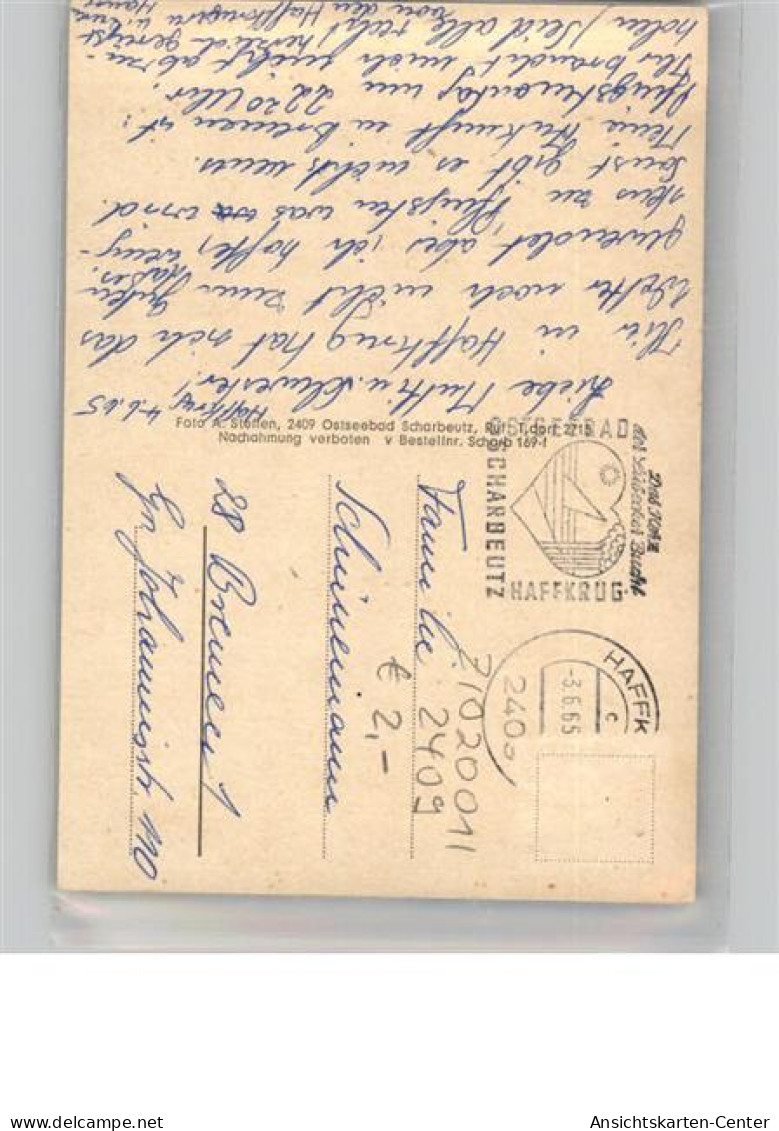 Haffkrug 4.6.65
Liebe Mutti u. Schwester!
Hier in Haffkrug hat sich das
Wetter noch nicht zum Guten
gewendet, aber ich hoffe, wenig-
stens zu Pfingsten was wird.
Sonst gibt es nichts neues.
Meine Ankunft in Bremen ist:
Pfingstmontag um 22 20 Uhr.
Ihr braucht mich nicht abzu-
holen. Seid alle recht herzlich gegrüßt
von den Haffkrugern
Foto A. Steffen, 2409 Ostseebad Scharbeutz, Ruf: T.dorf 2715
Nachahmung verboten v Bestellnr. Scharb 169-f
OSTSEEBAD
SCHARBEUTZ
HAFFKRUG
Das Herz
der Lübecker Bucht
HAFFK
2409
-3.6.65
c
Familie
Schünemann
28 Bremen 1
Gr. Johannisstr. 110
21020011
2409
€ 2,-
Ansichtskarten-Center